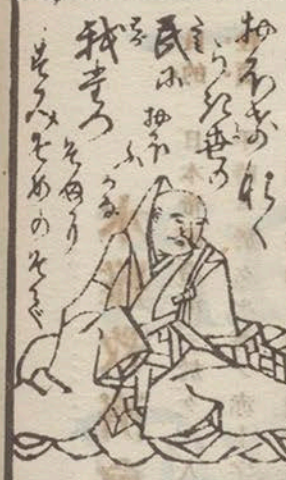 おほけなく
うき世の
民におほ
ふかな
我たつ
そまに
すみそめのそて